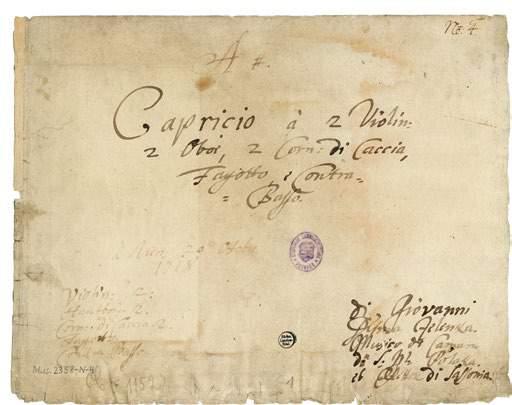 No: 4
A #.
Capricio à 2 Violin:
2 Oboe, 2 Corn: di Caccia,
Fagotto, è Contra=
= Basso.
1718
Violin: 2.
Hautbois 2.
Corne: di Caccia 2
Fagotto
Basso.
Di Giovanni
Disma Zelenka.
Musico di Camera
di S. M. Polaka.
et Elett: di Sassonia.
Mus. 2358-N-4
1